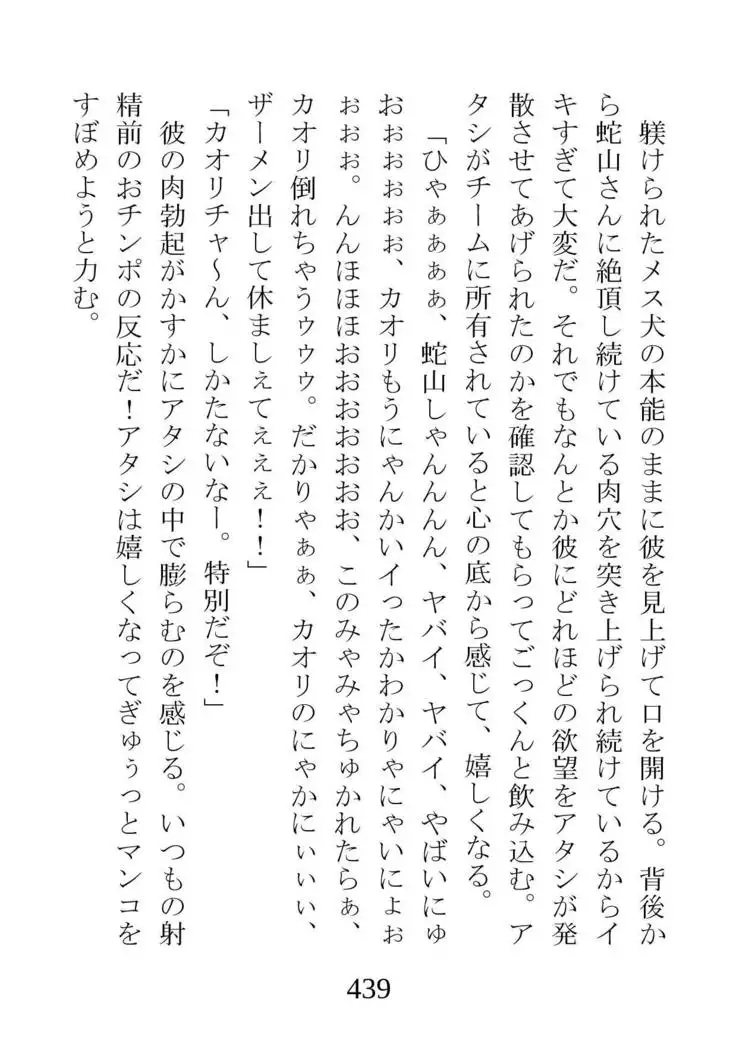 躾けられたメス犬の本能のままに彼を見上げて口を開ける。背後か
ら蛇山さんに絶頂し続けている肉穴を突き上げられ続けているからイ
キすぎて大変だ。それでもなんとか彼にどれほどの欲望をアタシが発
散させてあげられたのかを確認してもらってごっくんと飲み込む。ア
タシがチームに所有されていると心の底から感じて、嬉しくなる。
「ひゃぁぁぁぁ、蛇山しゃんんんん、ヤバイ、ヤバイ、やばいにゅ
おぉぉぉぉぉ、カオリもうにゃんかいイったかわかりゃにゃいにょぉ
ぉぉぉ。んんほほほおおおおおおお、このみゃみゃちゅかれたらぁ、
カオリ倒れちゃうゥゥゥ。だかりゃぁぁ、カオリのにゃかにぃぃぃ、
ザーメン出して休ましぇてぇぇぇ！！」
「カオリチャ～ん、しかたないなー。特別だぞ！」
　彼の肉勃起がかすかにアタシの中で膨らむのを感じる。いつもの射
精前のおチンポの反応だ！アタシは嬉しくなってぎゅぅっとマンコを
すぼめようと力む。
439